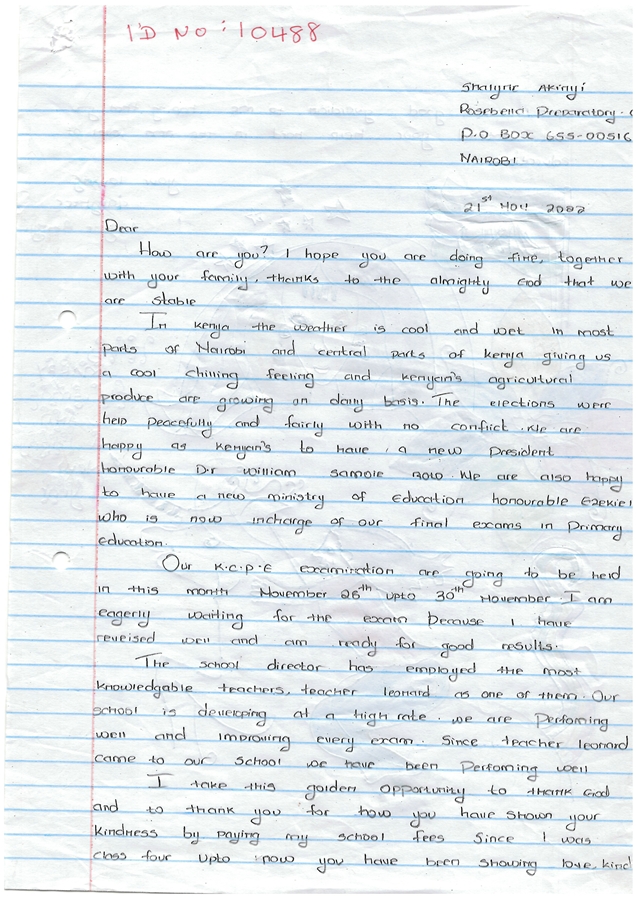 I'D NO: 10488
Akinyi
Rosebella Preparatory.
P.O BOX 655-00516
NAIROBI
21st Nov 2022
Dear
How are you? I hope you are doing fine, together
with your family, thanks to the almighty God that we
are stable
In kenya the weather is cool and wet in most
parts of Nairobi and central parts of kenya giving us
a cool chilling feeling and kenyan's agricultural
produce are growing on daily basis. The elections were
held peacefully and fairly with no conflict. We are
happy as kenyan's to have a new President
honourable D.r william samoie Roto. We are also happy
to have a new ministry of Education honourable Ezekiel
who is now incharge of our final exams in Primary
education.
Our K.C.P.E examination are going to be held
in this month November 26th upto 30th November. I am
eagerly waiting for the exam because I have
reveised well and am ready for good results.
The school director has employed the most
knowledgable teachers, teacher leonard as one of them. Our
school is developing at a high rate. we are Perfoming
well and improving every exam. Since teacher leonard
came to our school we have been Perfoming well
I take this golden opportunity to thank God
and to thank you for how you have shown your
kindness by paying my school fees Since I was
class four upto now you have been showing love, kind